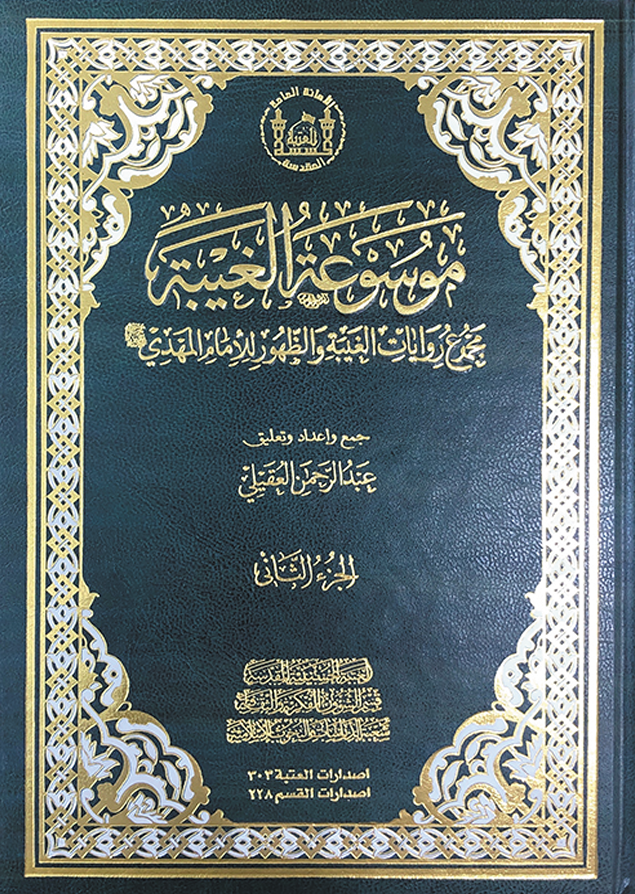 الأمانة العامة
للعتبة
المقدسة
موسوعة الغيبة
مجموع روايات الغيبة والظهور للإمام المهدي
جمع وإعداد وتعليق
عبد الرحمن العقيلي
الجزء الثاني
العتبة الحسينية المقدسة
قسم الشؤون الفكرية والثقافية
شعبة الدراسات والبحوث الإسلامية
اصدارات العتبة ٣٠٣
اصدارات القسم ٢٢٨